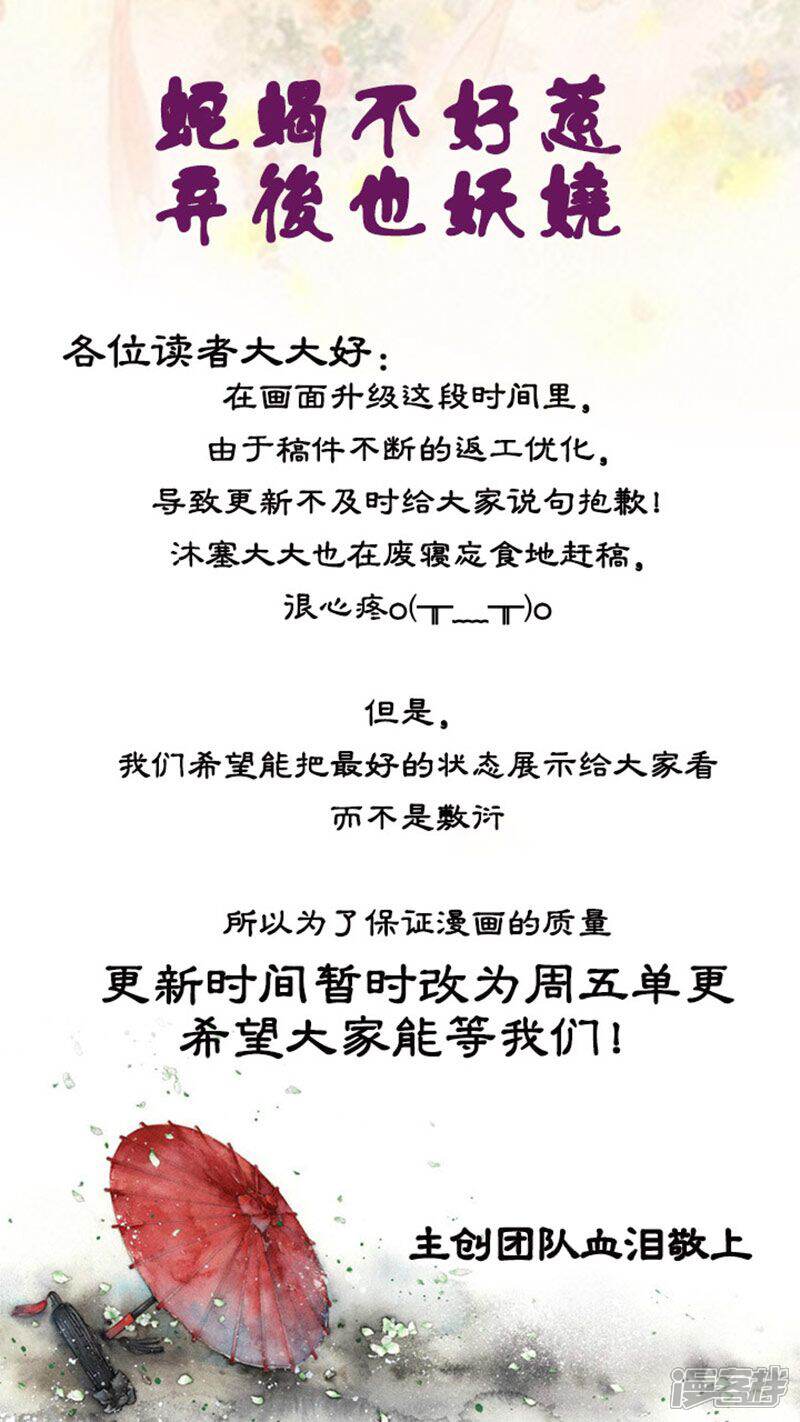 蛇蝎不好惹
弃後也妖娆
各位读者大大好：
在画面升级这段时间里，
由于稿件不断的返工优化，
导致更新不及时给大家说句抱歉！
沐塞大大也在废寝忘食地赶稿，
很心疼o(╥﹏╥)o
但是，
我们希望能把最好的状态展示给大家看
而不是敷衍
所以为了保证漫画的质量
更新时间暂时改为周五单更
希望大家能等我们！
主创团队血泪敬上
漫客栈